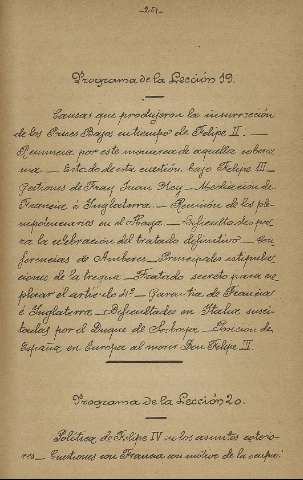 -251-
Programa de la Lección 19.
Causas que produjeron la insurrección
de los Paises Bajos en tiempo de Felipe II. —
Renuncia por este monarca de aquella sobera-
nia — Estado de esta cuestión bajo Felipe III —
Gestiones de Fray Juan Ney — Mediación de
Francia é Inglaterra. — Reunión de los ple-
nipotenciarios en el Haya. — Dificultades pa-
ra la celebración del tratado definitivo — Con
ferencias de Amberes — Principales estipula-
ciones de la tregua — Tratado secreto para ex-
plicar el artículo 4º — Garantia de Francia
é Inglaterra — Dificultades en Italia susci-
tadas por el Duque de Saboya. —
España en Europa al morir Don Felipe III.
Programa de la Lección 20.
Política de Felipe IV en los asuntos exterio-
res — Cuestiones con Francia con motivo de la